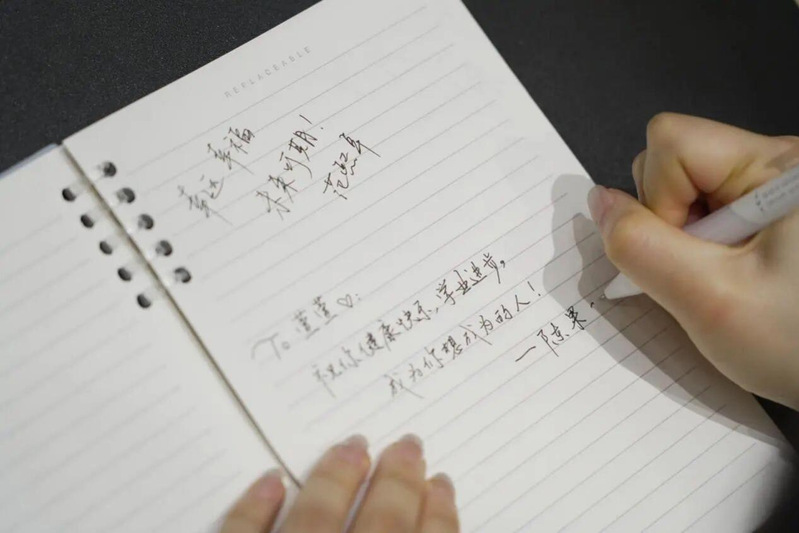 REPLACEABLE
幸运 幸福
未来可期！
To 萱萱♡：
祝你健康快乐，学业进步，
成为你想成为的人！
一陈果